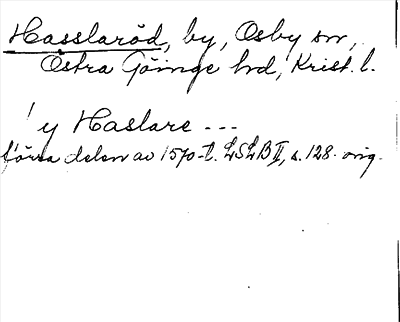 Hasslaröd, by, Osby sn,
Östra Göinge hd, Krist. l.
y Haslare ---
förra delen av 1570-t. LSLB II, s. 128. orig.